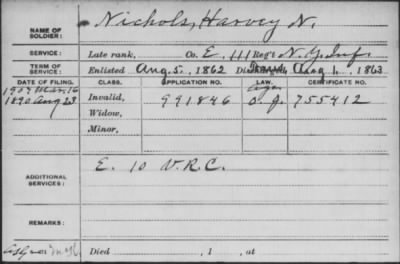 NAME OF SOLDIER: Nichols, Harvey N.
SERVICE: Late rank, Co. E, 111 Reg't N.Y. Inf.
TERM OF SERVICE: Enlisted Aug. 5, 1862 Aug 1, 1863
DATE OF FILING. CLASS. APPLICATION NO. LAW. CERTIFICATE NO.
1907 Mar. 16
1890 Aug 23 Invalid, 991846 755412
Widow,
Minor,
ADDITIONAL SERVICES: E. 10 V.R.C.
REMARKS:
Died , 1 , at